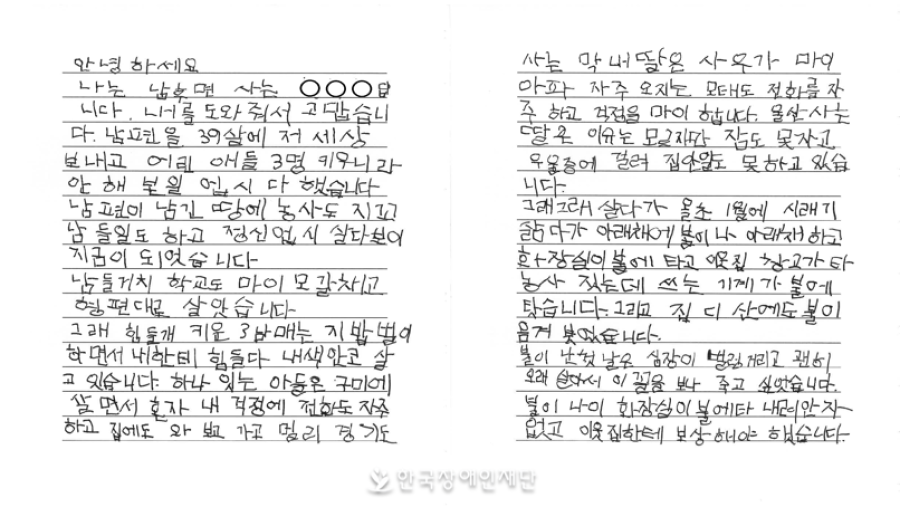 안녕하세요
나는 남후면 사는 ○○○입
니다. 나를 도와줘서 고맙습니
다. 남편을 39살에 저 세상
보내고 어린 애들 3명 키우니라
안 해 본 일 없시 다 했습니다
남편이 남긴 땅에 농사도 지꼬
남 들일도 하고 정신업시 살다보이
지금이 되었습니다
남들거치 학교도 마이 모 갈차고
형편대로 살았습니다
그래 힘들개 키운 3남매는 지 밥벌이
하면서 내한테 힘들다 내색안코 살
고 있습니다. 하나 있는 아들은 구미에
살면서 혼자 내 걱정에 전화도 자주
하고 집에도 와 보고 가고 멀리 경기도
사는 막내딸은 사우가 마이
아파 자주 오지는 모대도 전화를 자
주 하고 걱정을 마이 합니다. 울산사는
딸은 이유는 모르지만 잠도 못자고
우울증에 걸려 집안일도 못하고 있습
니다.
그래그래 살다가 올초 1월에 시래기
삶다가 아래채에 불이 나 아래채하고
화장실이 불에 타고 이웃집 창고가 타
농사 짓는데 쓰는 기계가 불에
탔습니다. 그리고 집 디 산에도 불이
옴겨 붓었습니다.
불이 난 첫 날은 심장이 벌렁거리고 괜히
오래 살아서 이 꼴을 보나 죽고 싶었습니다.
불이 나이 화장실이 불에타 내 집이 안자
없고 이웃집한테 보상해야 했습니다.
한국장애인재단